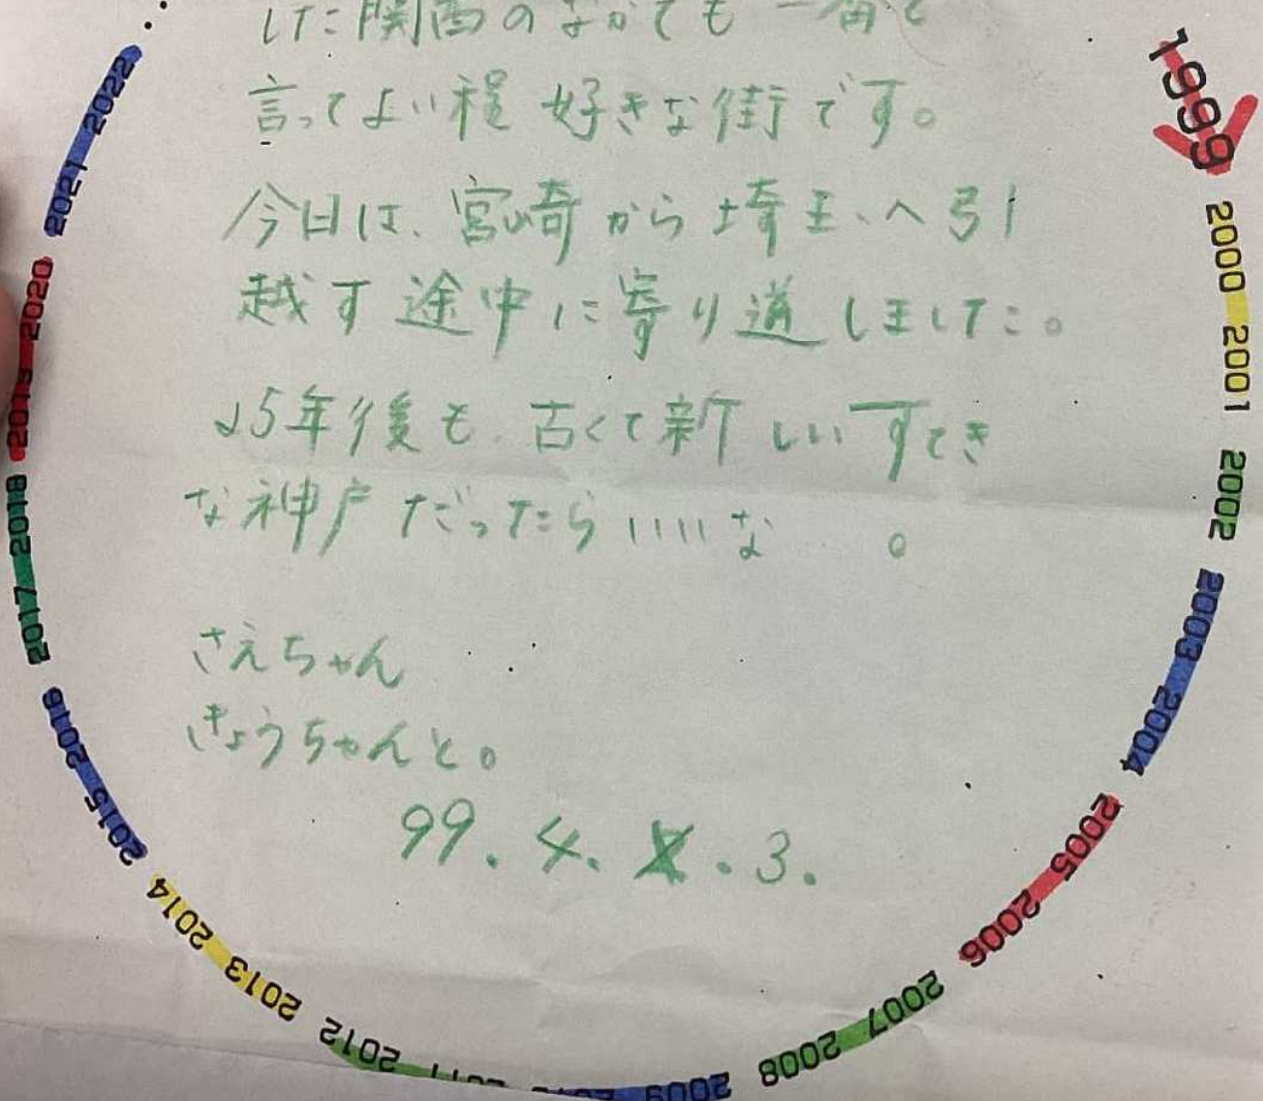 した関西のなかでも一番と
言ってよい程 好きな街です。
今日は、宮崎から埼玉へ引
越す途中に寄り道しました。
25年後も、古くて新しいすてき
な神戸だったらいいな 。
さえちゃん
きょうちゃんと。
99.4. .3.
1999
2000 2001
2002
2003 2004
2005 2006
2007 2008
2009
2012
2013 2014
2015 2016
2017 2018
2019 2020
2021 2022